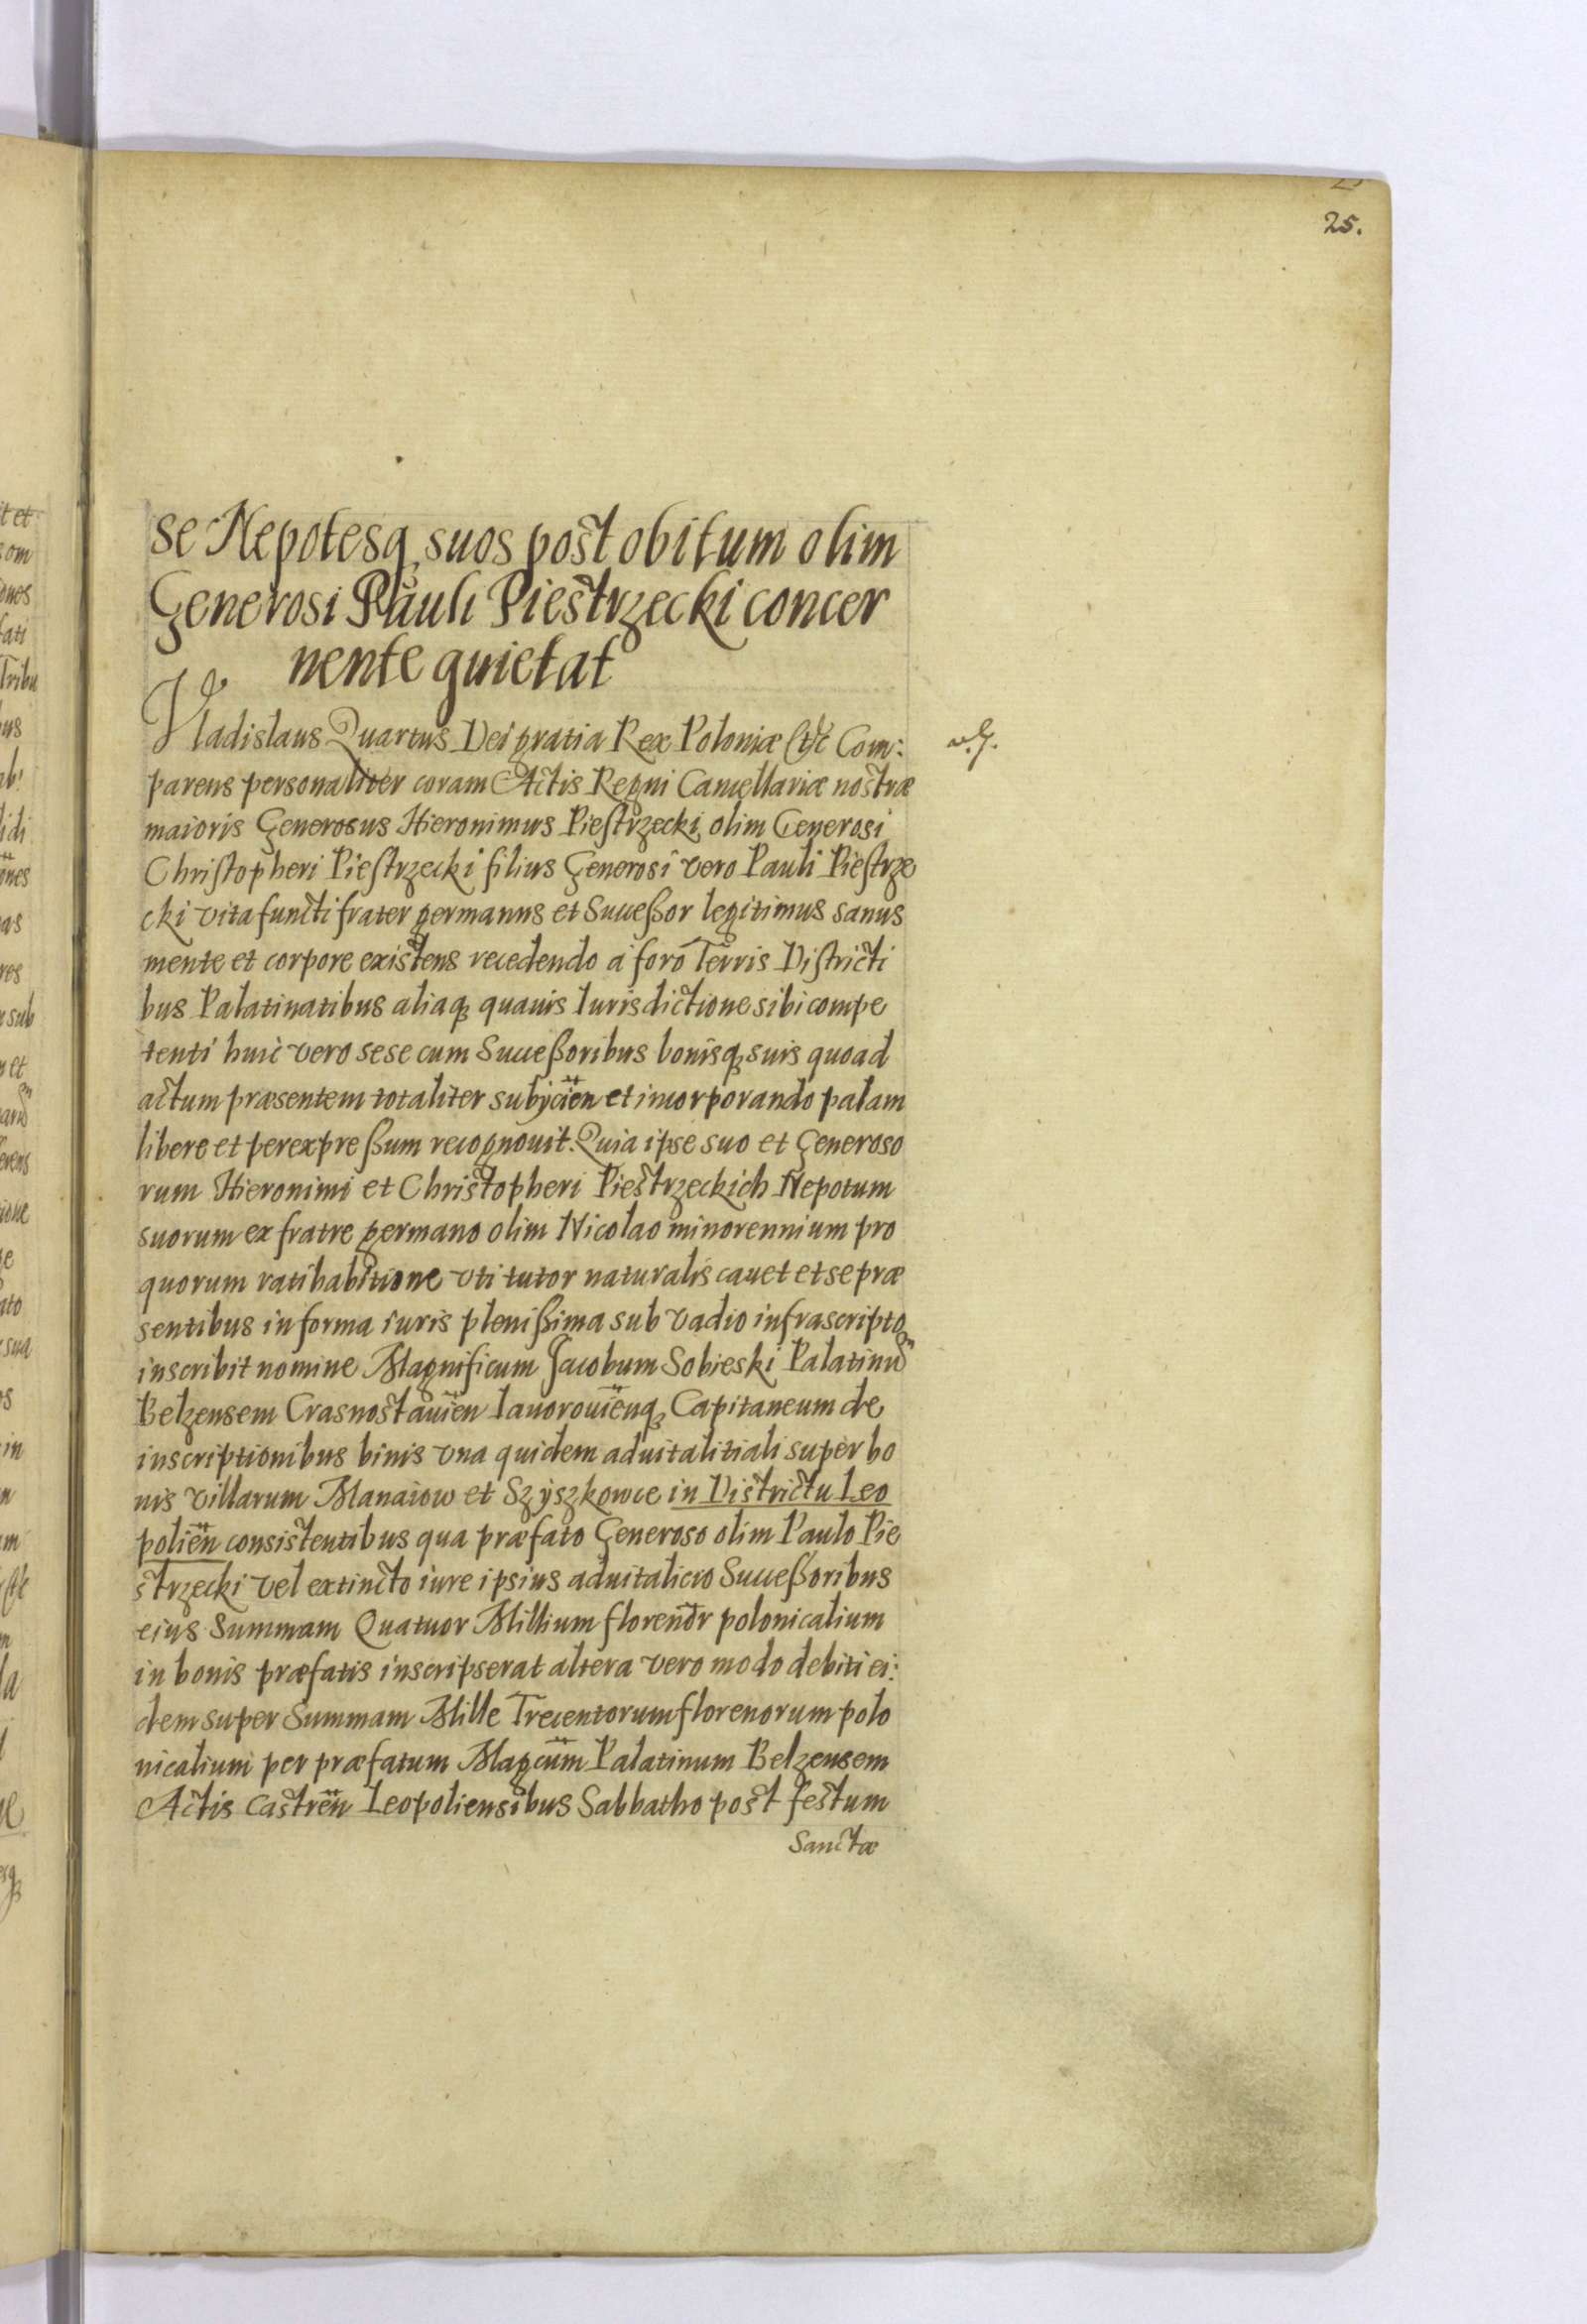 25.
se Nepotesq suos post obitum olim
Generosi Pauli Piestrzecki concer
nente quietat
Vladislaus Quartus Dei gratia Rex Poloniæ &c Com:
parens personaliter coram Actis Regni Cancellariæ nostræ
maioris Generosus Hieronimus Piestrzecki olim Generosi
Christopheri Piestrzecki filius Generosi vero Pauli Piestrze
cki vita functi frater germanus et Successor legitimus sanus
mente et corpore existens recedendo a foro Terris Districti
bus Palatinatibus aliaq quauis Iurisdictione sibi compe
tenti huic vero sese cum Successoribus bonisq suis quoad
actum præsentem totaliter subijcien et incorporando palam
libere et per expressum recognouit. Quia ipse suo et Generoso
rum Hieronimi et Christopheri Piestrzeckich Nepotum
suorum ex fratre germano olim Nicolao minorennium pro
quorum ratihabitione vti tutor naturalis cauet et se præ
sentibus in forma iuris plenissima sub vadio infrascripto
inscribit nomine Magnificum Jacobum Sobieski Palatinum
Belzensem Crasnostauien Iauorouienq Capitaneum de
inscriptionibus binis vna quidem aduitalitiali super bo
nis villarum Manaiow et Szyszkowce in Districtu Leo
polien consistentibus qua præfato Generoso olim Paulo Pie
strzecki vel extincto iure ipsius aduitalicio Successoribus
eius Summam Quatuor Millium florenor polonicalium
in bonis præfatis inscripserat altera vero modo debiti ei:
dem super Summam Mille Trecentorum florenorum polo
nicalium per præfatum Magcum Palatinum Belzensem
Actis Castren Leopoliensibus Sabbatho post festum
Sanctæ